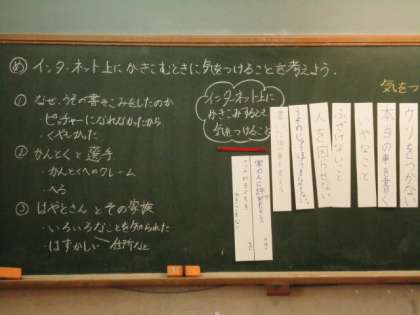 め インターネット上にかきこむときに気をつけることを考えよう。
① なぜ、うその書きこみをしたのか
ピッチャーになれなかったから
くやしかった
② かんとくと選手
・かんとくへのクレーム
・へる
③ はやとさんとその家族
・いろいろなことを知られた
・はずかしい 住所など
インターネット上に
かきこみするとき
気をつけること
気をつ
ウソをつかない
本当の事を書く
いやなこと
ふざけないこと
人を困らせない